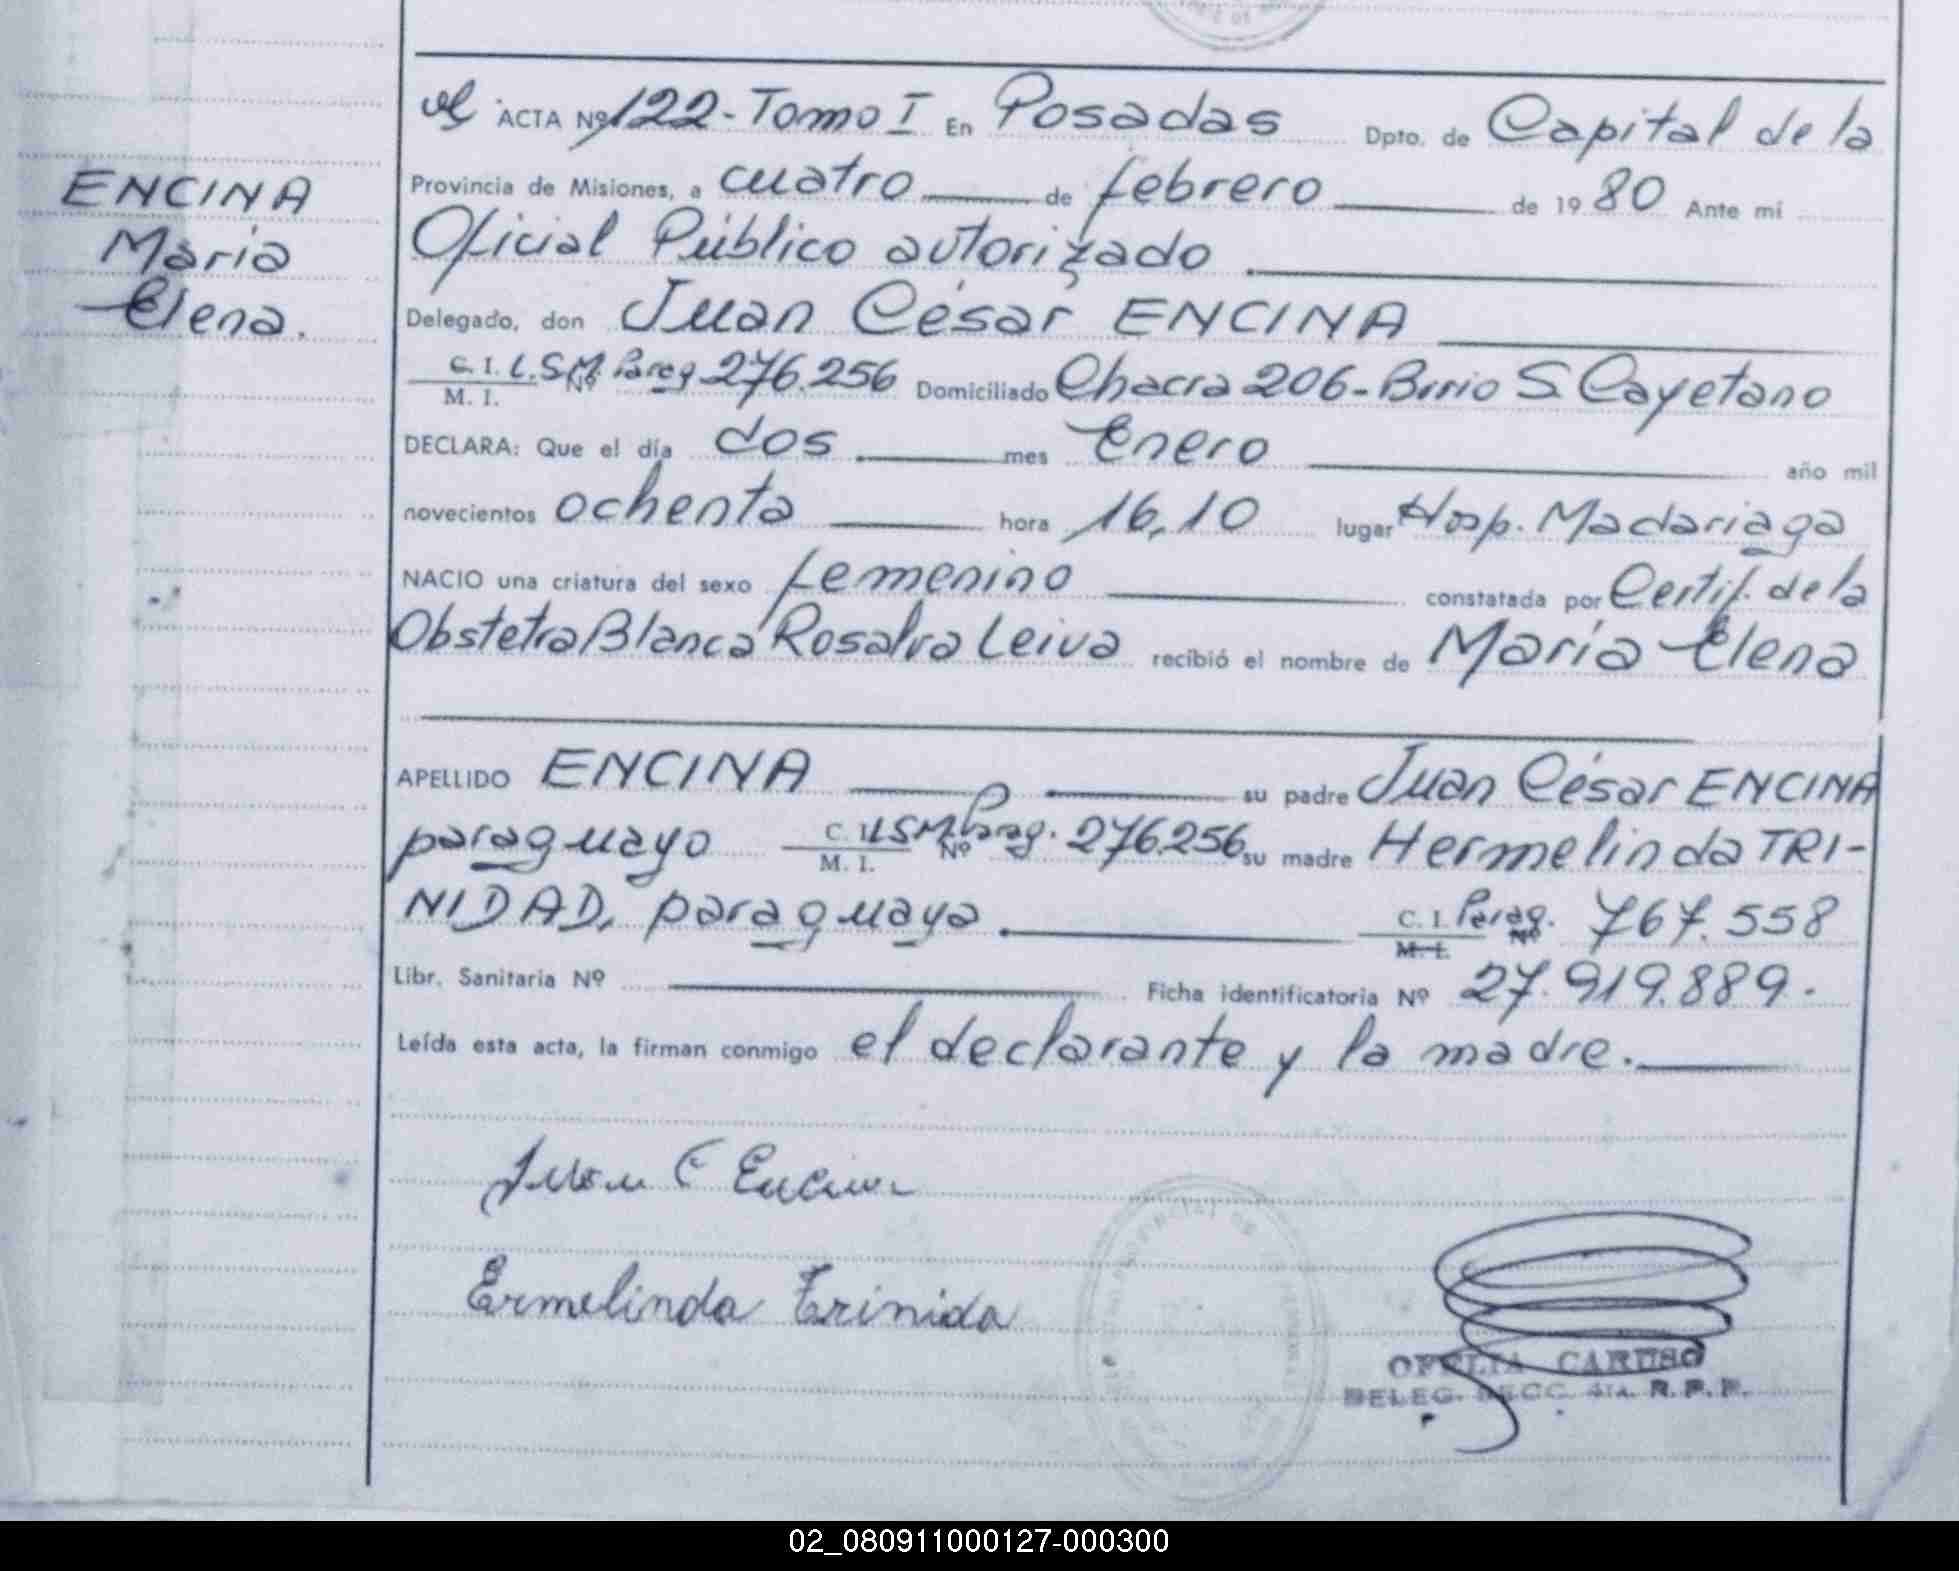 ACTA Nº 122 - Tomo I En Posadas Dpto. de Capital de la
ENCINA
María
Elena.
Provincia de Misiones, a cuatro de febrero de 1980 Ante mí
Oficial Público autorizado
Delegado, don Juan César ENCINA
C. I. L.S.M. Parag Nº 276.256 Domiciliado Chacra 206 - Brrio S. Cayetano
M. I.
DECLARA: Que el día dos mes Enero año mil
novecientos ochenta hora 16,10 lugar Hosp. Madariaga
NACIO una criatura del sexo femenino constatada por Certif. de la
Obstetra Blanca Rosalva Leiva recibió el nombre de María Elena
APELLIDO ENCINA su padre Juan César ENCINA
paraguayo C. I. LSM Parag. Nº 276.256 su madre Hermelinda TRI-
M. I.
NIDAD, paraguaya. C. I. Parag. Nº 767.558
M. I.
Libr. Sanitaria Nº Ficha identificatoria Nº 27.919.889.
Leída esta acta, la firman conmigo el declarante y la madre.
Juan C Encina
Ermelinda Trinida
OFELIA CARUSO
DELEG. SECC. 4ta. R.P.P.
02_080911000127-000300